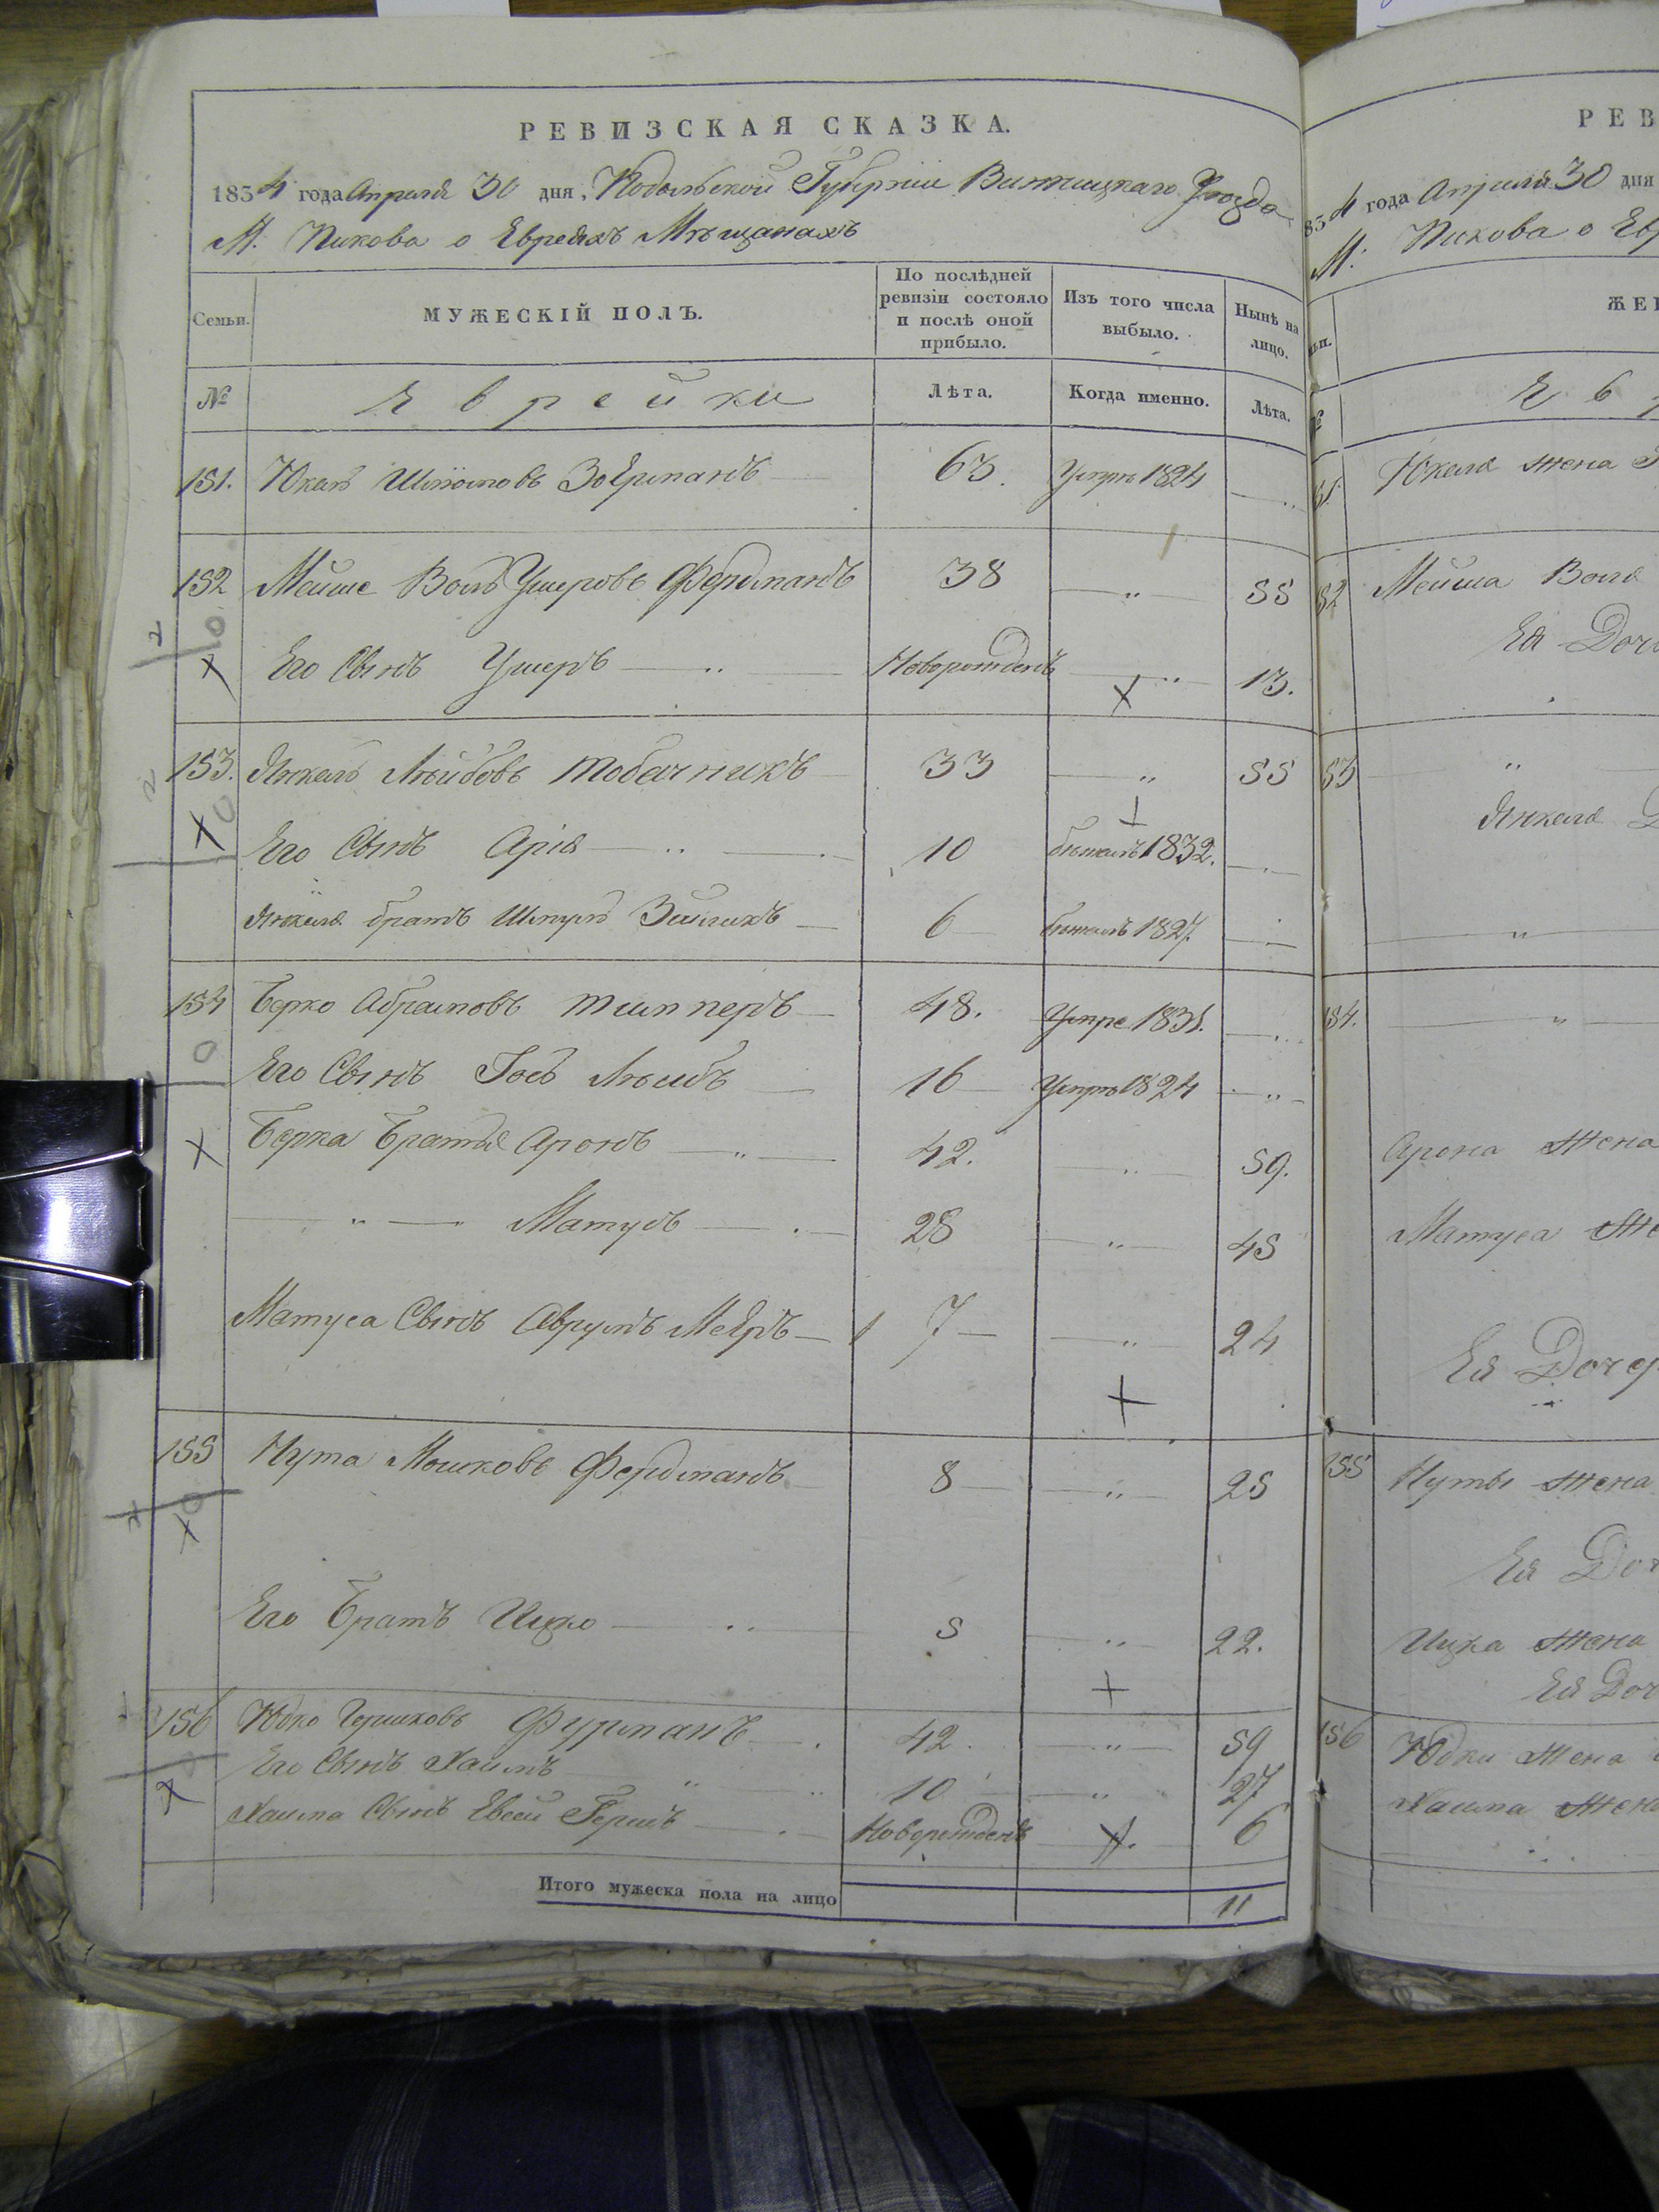 РЕВИЗСКАЯ СКАЗКА.
1834 года Апреля 30 дня, Подольской Губерніи Винницкаго Уезда
М. Пикова о Евреяхъ Мѣщанахъ
Семьи.
МУЖЕСКІЙ ПОЛЪ.
По послѣдней ревизіи состояло и послѣ оной прибыло.
Изъ того числа выбыло.
Нынѣ на лицо.
№
Еврейки
Лѣта.
Когда именно.
Лѣта.
151. Юкель Зоерманъ 63. Умре 1824
152 Мейше Волъ Умеровъ Фердманъ 38 " 55
Его Сынъ Умеръ Новорожденъ " 13.
153. Янкель Лейбовъ Тобачникъ 33 " 55
Его Сынъ Арія 10 бежалъ 1832.
Янкеля братъ Шмуль Зейликъ 6 бежалъ 1827.
154 Берко Абрамовъ Типперъ 48. Умре 1831.
Его Сынъ Гось Лейбъ 16 Умре 1824
Берка Братья Аронъ 42. " 59.
" Матусъ 28 " 45
Матуса Сынъ Аврумъ Мееръ 7 " 24
155 Нута Мошковъ Фердманъ 8 " 25
Его Братъ Ицко 5 " 22.
156 Юдко Гершковъ Фурманъ 42. " 59
Его Сынъ Хаимъ 10 " 27
Хаима Сынъ Евсей Гершъ Новорожденъ 6
Итого мужеска пола на лицо 11
РЕВ
834 года Апреля 30 дня
М. Пикова о Ев
ЖЕ
Юкеля жена
Мейша Воля
Ея Доч
53 "
Янкеля
"
154. "
Арона Жена
Матуса Же
Ея Дочер
155 Нуты жена
Ея Доч
Ицка жена
Ея Доч
156 Юдки жена
Хаима Жена